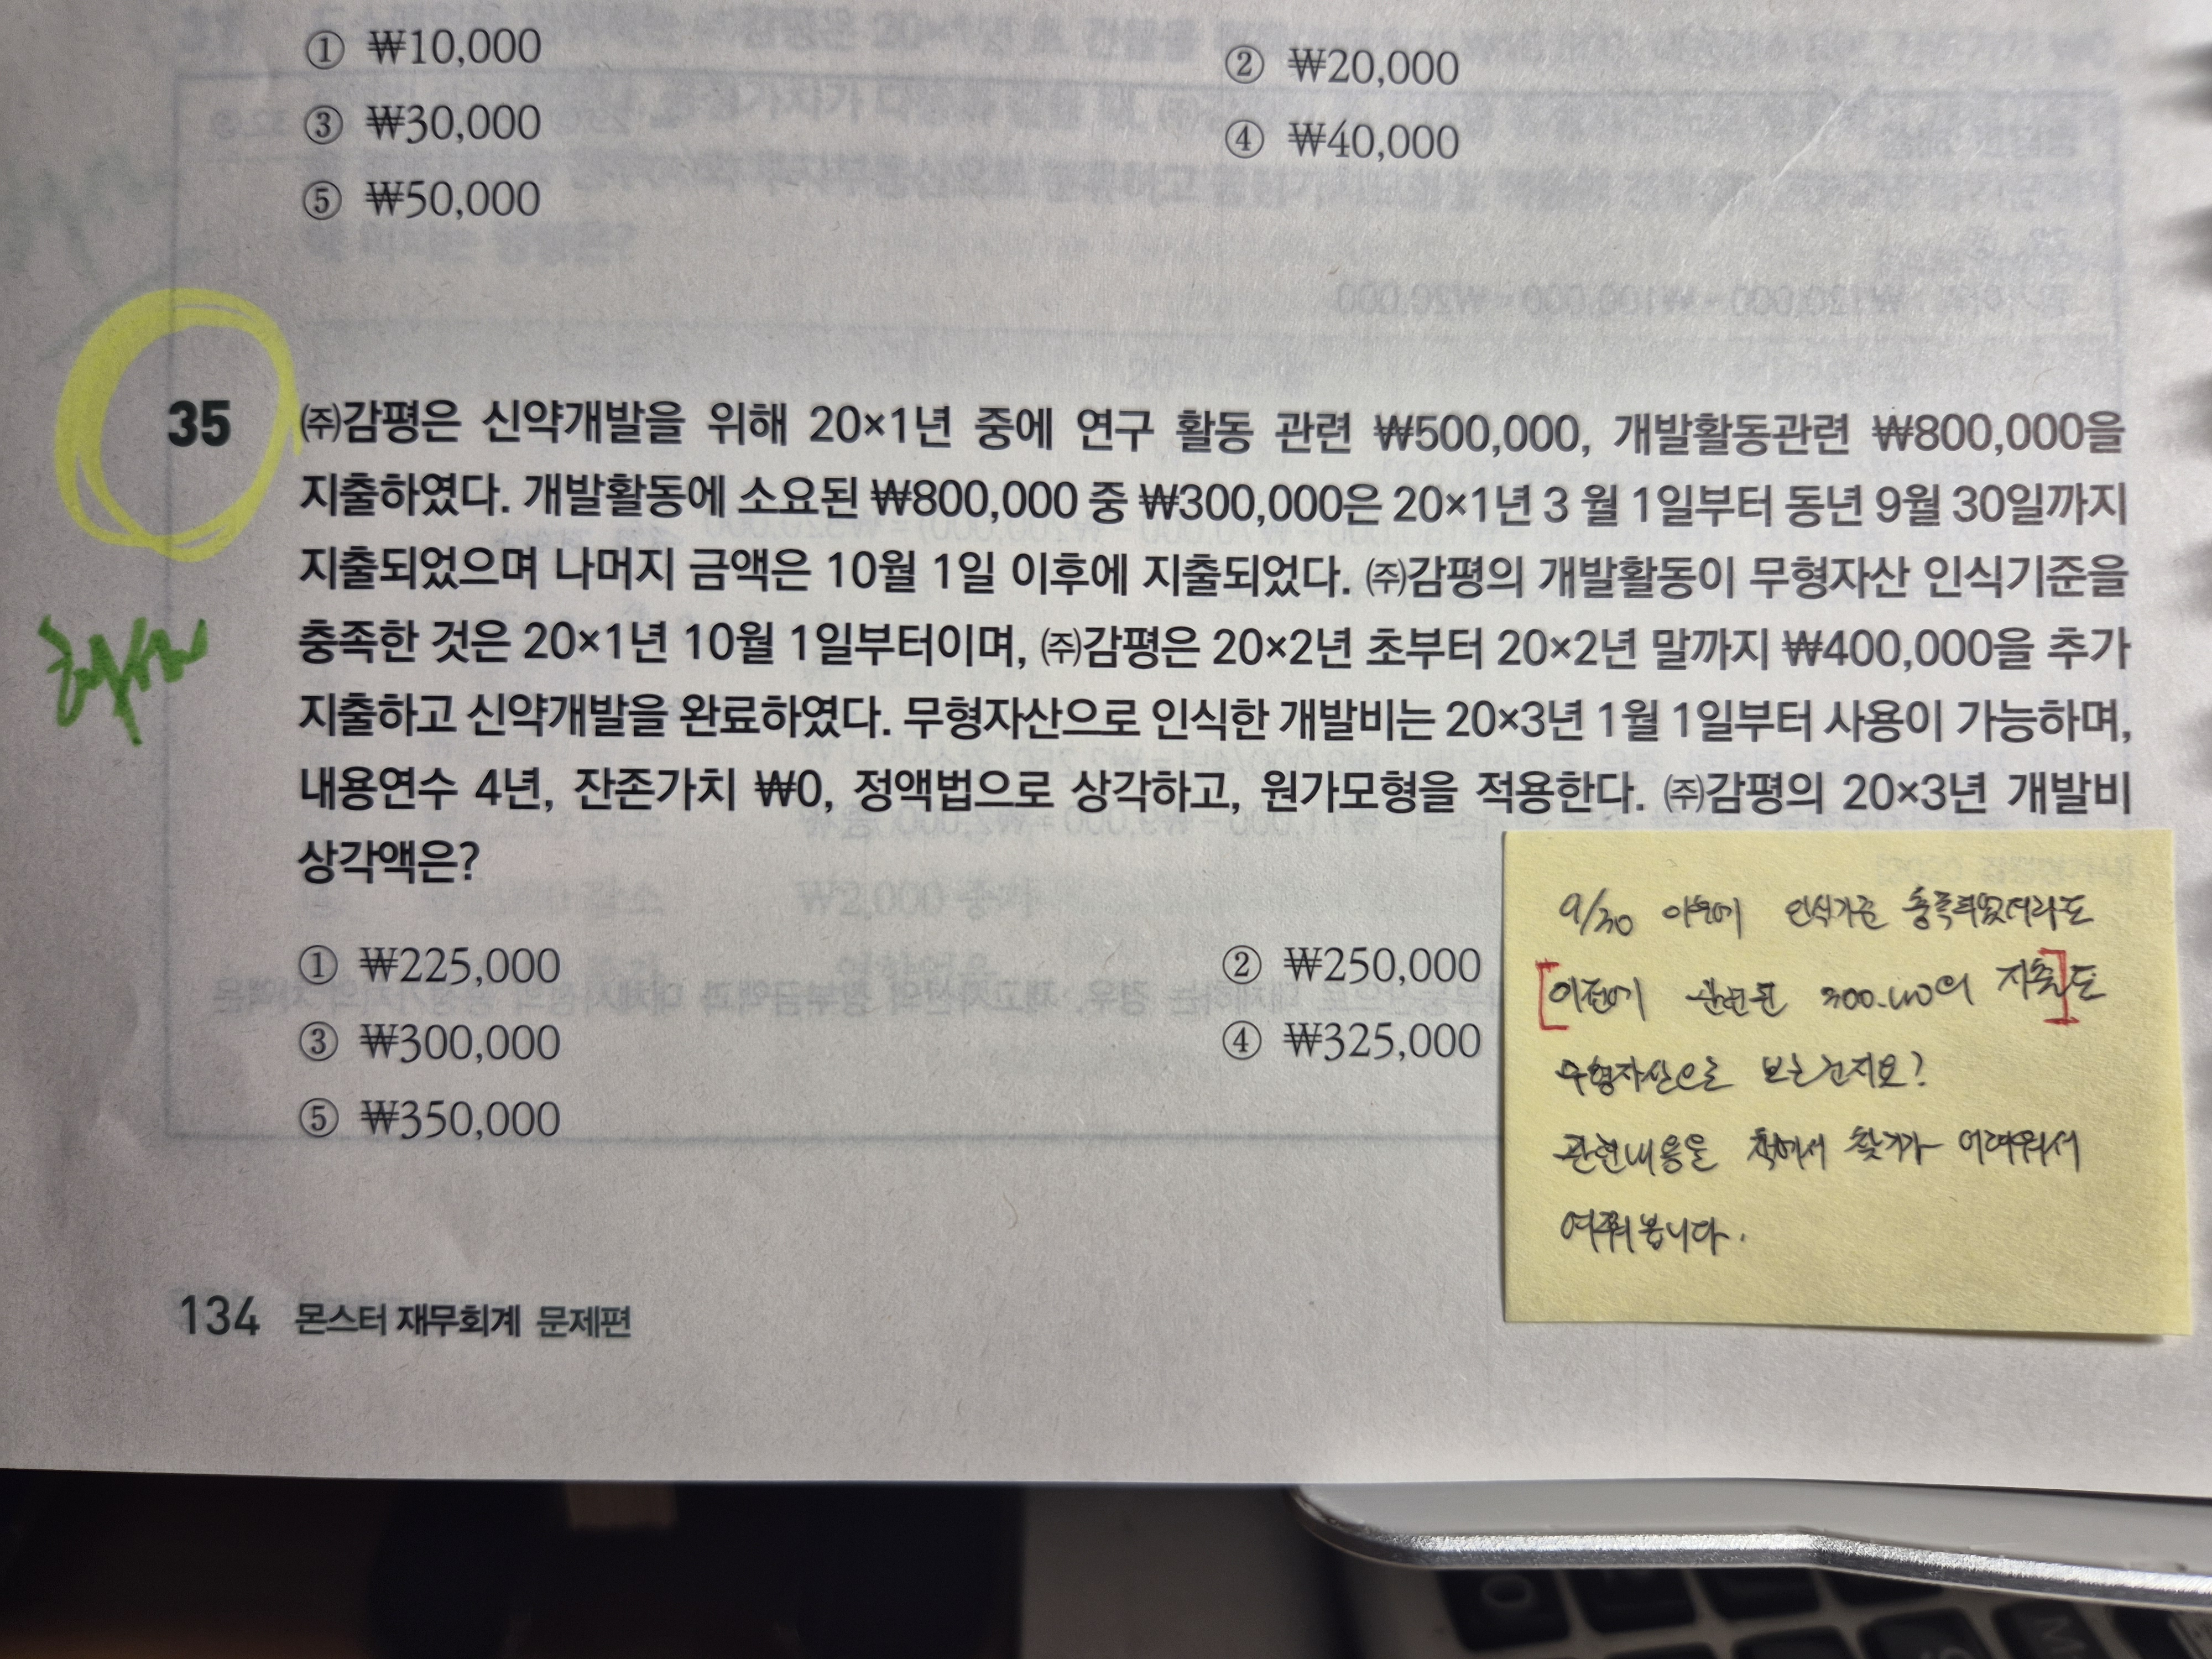 ① ₩10,000
② ₩20,000
③ ₩30,000
④ ₩40,000
⑤ ₩50,000
35
㈜감평은 신약개발을 위해 20×1년 중에 연구 활동 관련 ₩500,000, 개발활동관련 ₩800,000을
지출하였다. 개발활동에 소요된 ₩800,000 중 ₩300,000은 20×1년 3 월 1일부터 동년 9월 30일까지
지출되었으며 나머지 금액은 10월 1일 이후에 지출되었다. ㈜감평의 개발활동이 무형자산 인식기준을
충족한 것은 20×1년 10월 1일부터이며, ㈜감평은 20×2년 초부터 20×2년 말까지 ₩400,000을 추가
지출하고 신약개발을 완료하였다. 무형자산으로 인식한 개발비는 20×3년 1월 1일부터 사용이 가능하며,
내용연수 4년, 잔존가치 ₩0, 정액법으로 상각하고, 원가모형을 적용한다. ㈜감평의 20×3년 개발비
상각액은?
① ₩225,000
② ₩250,000
③ ₩300,000
④ ₩325,000
⑤ ₩350,000
9/30 이후에 인식기준 충족되었더라도
[이전에 300.000의 지출]도
무형자산으로 보는건지요?
관련내용을 책에서 찾기가 어려워서
여쭤봅니다.
134 몬스터 재무회계 문제편